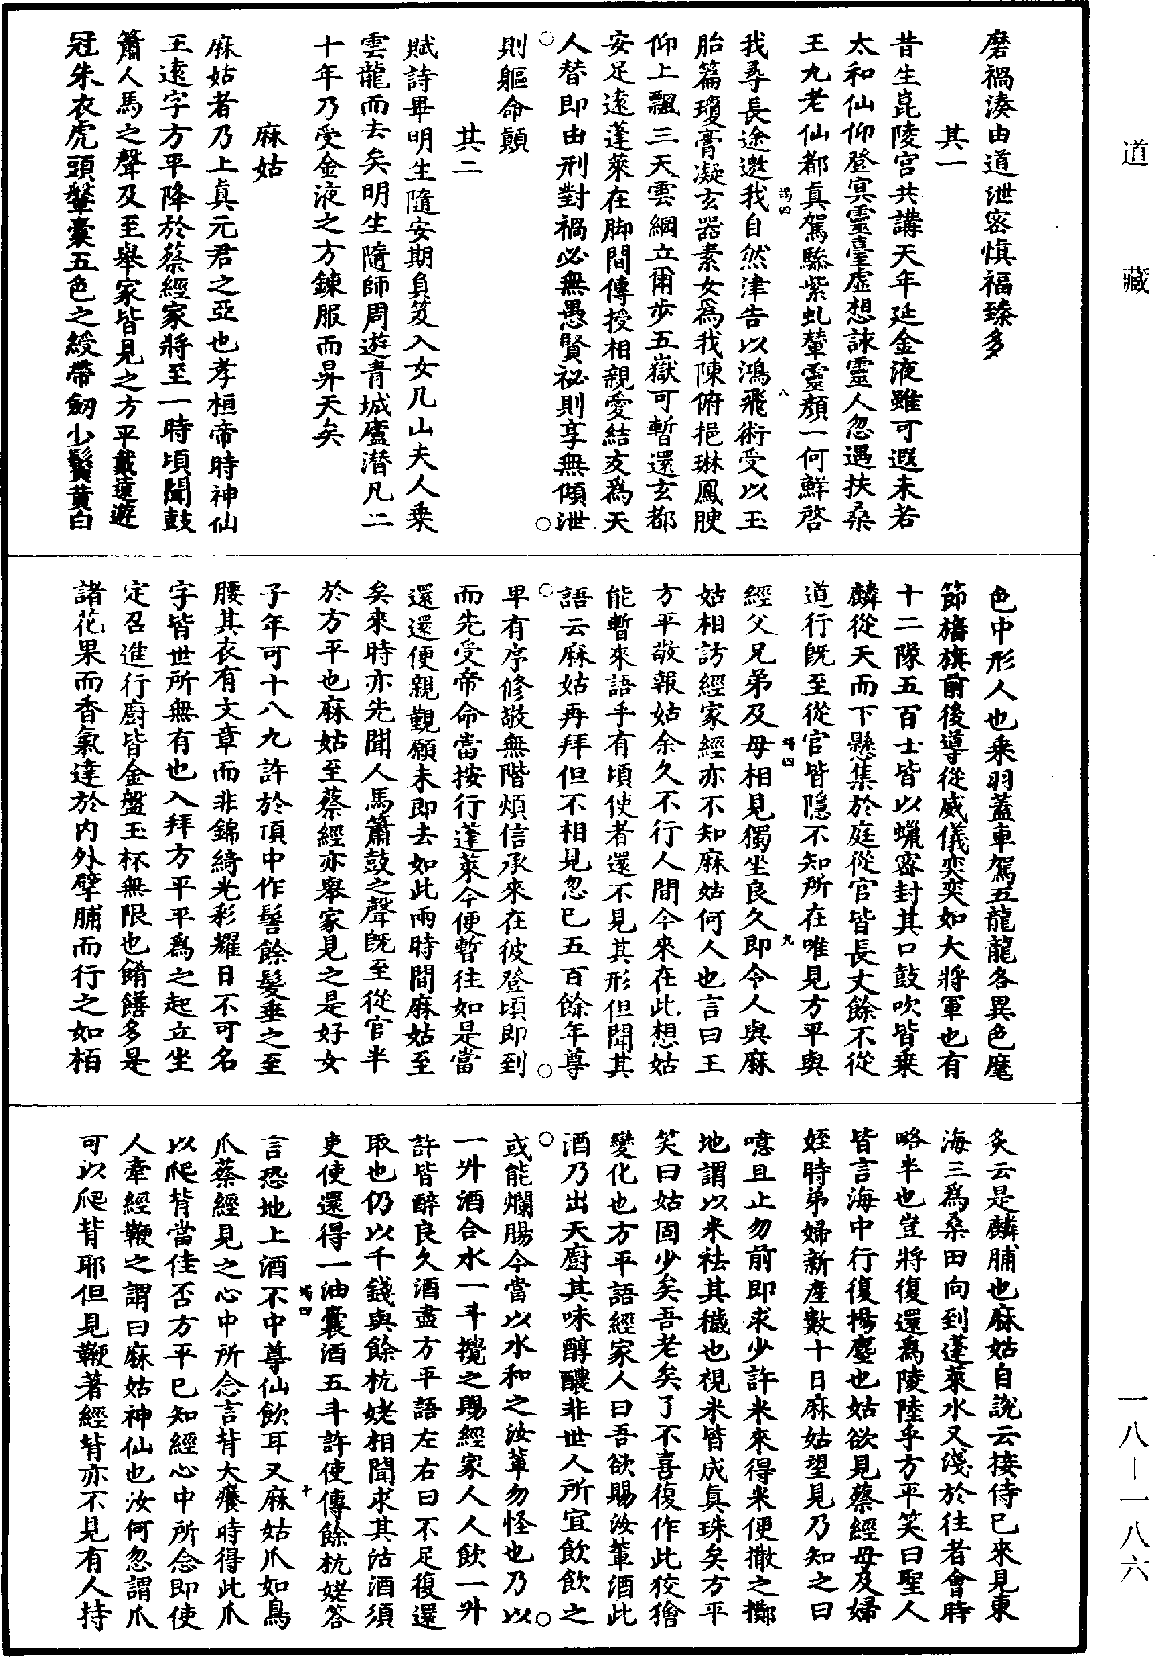 道藏
一八—一八六
磨禍湊由道泄密慎福臻多
其一
昔生崑陵宮共講天年延金液雖可遐未若
太和仙仰登冥靈臺虛想詠靈人忽遇扶桑
王九老仙都真駕驂紫虬輦靈顏一何鮮啓
我尋長途邀我自然津告以鴻飛術受以玉
胎篇瓊膏凝玄器素女為我陳俯挹琳鳳腴
仰上飄三天雲綱立爾步五嶽可暫還玄都
安足遠蓬萊在脚間傳授相親愛結友為天
人替即由刑對禍必無愚賢祕則享無傾泄
則軀命顛
其二
賦詩畢明生隨安期負笈入女几山夫人乗
雲龍而去矣明生隨師周遊青城廬潛凡二
十年乃受金液之方鍊服而昇天矣
麻姑
麻姑者乃上真元君之亞也孝桓帝時神仙
王遠字方平降於蔡經家將至一時頃聞鼓
簫人馬之聲及至舉家皆見之方平戴遠遊
冠朱衣虎頭鞶囊五色之綬帶劒少鬚黃白
色中形人也乘羽蓋車駕五龍龍各異色麾
節旛旗前後導從威儀奕奕如大將軍也有
十二隊五百士皆以蠟密封其口鼓吹皆乗
麟從天而下懸集於庭從官皆長丈餘不從
道行既至從官皆隱不知所在唯見方平與
經父兄弟及母相見獨坐良久即令人與麻
姑相訪經家經亦不知麻姑何人也言曰王
方平敬報姑余久不行人間今來在此想姑
能暫來語乎有頃使者還不見其形但聞其
語云麻姑再拜但不相見忽已五百餘年尊
卑有序修敬無階煩信承來在彼登頃即到
而先受帝命當按行蓬萊今便暫往如是當
還還便親覲願未即去如此兩時間麻姑至
矣來時亦先聞人馬簫鼓之聲既至從官半
於方平也麻姑至蔡經亦舉家見之是好女
子年可十八九許於頂中作髻餘髮垂之至
腰其衣有文章而非錦綺光彩耀日不可名
字皆世所無有也入拜方平平為之起立坐
定召進行廚皆金盤玉杯無限也餚饍多是
諸花果而香氣達於內外擘脯而行之如栢
炙云是麟脯也麻姑自說云接侍已來見東
海三為桑田向到蓬萊水又淺於往者會時
略半也豈將復還為陵陸乎方平笑曰聖人
皆言海中行復揚塵也姑欲見蔡經母及婦
姪時弟婦新產數十日麻姑望見乃知之曰
噫且止勿前即求少許米來得米便撒之擲
地謂以米祛其穢也視米皆成真珠矣方平
笑曰姑固少矣吾老矣了不喜復作此狡獪
變化也方平語經家人曰吾欲賜汝輩酒此
酒乃出天廚其味醇醲非世人所宜飲飲之
或能爛腸今當以水和之汝輩勿怪也乃以
一升酒合水一斗攪之賜經家人人飲一升
許皆醉良久酒盡方平語左右曰不足復還
取也仍以千錢與餘杭姥相聞求其沽酒須
臾使還得一油囊酒五斗許使傳餘杭姥答
言恐地上酒不中尊仙飲耳又麻姑爪如鳥
爪蔡經見之心中所念言背大癢時得此爪
以爬背當佳否方平已知經心中所念即使
人牽經鞭之謂曰麻姑神仙也汝何忽謂爪
可以爬背耶但見鞭著經背亦不見有人持